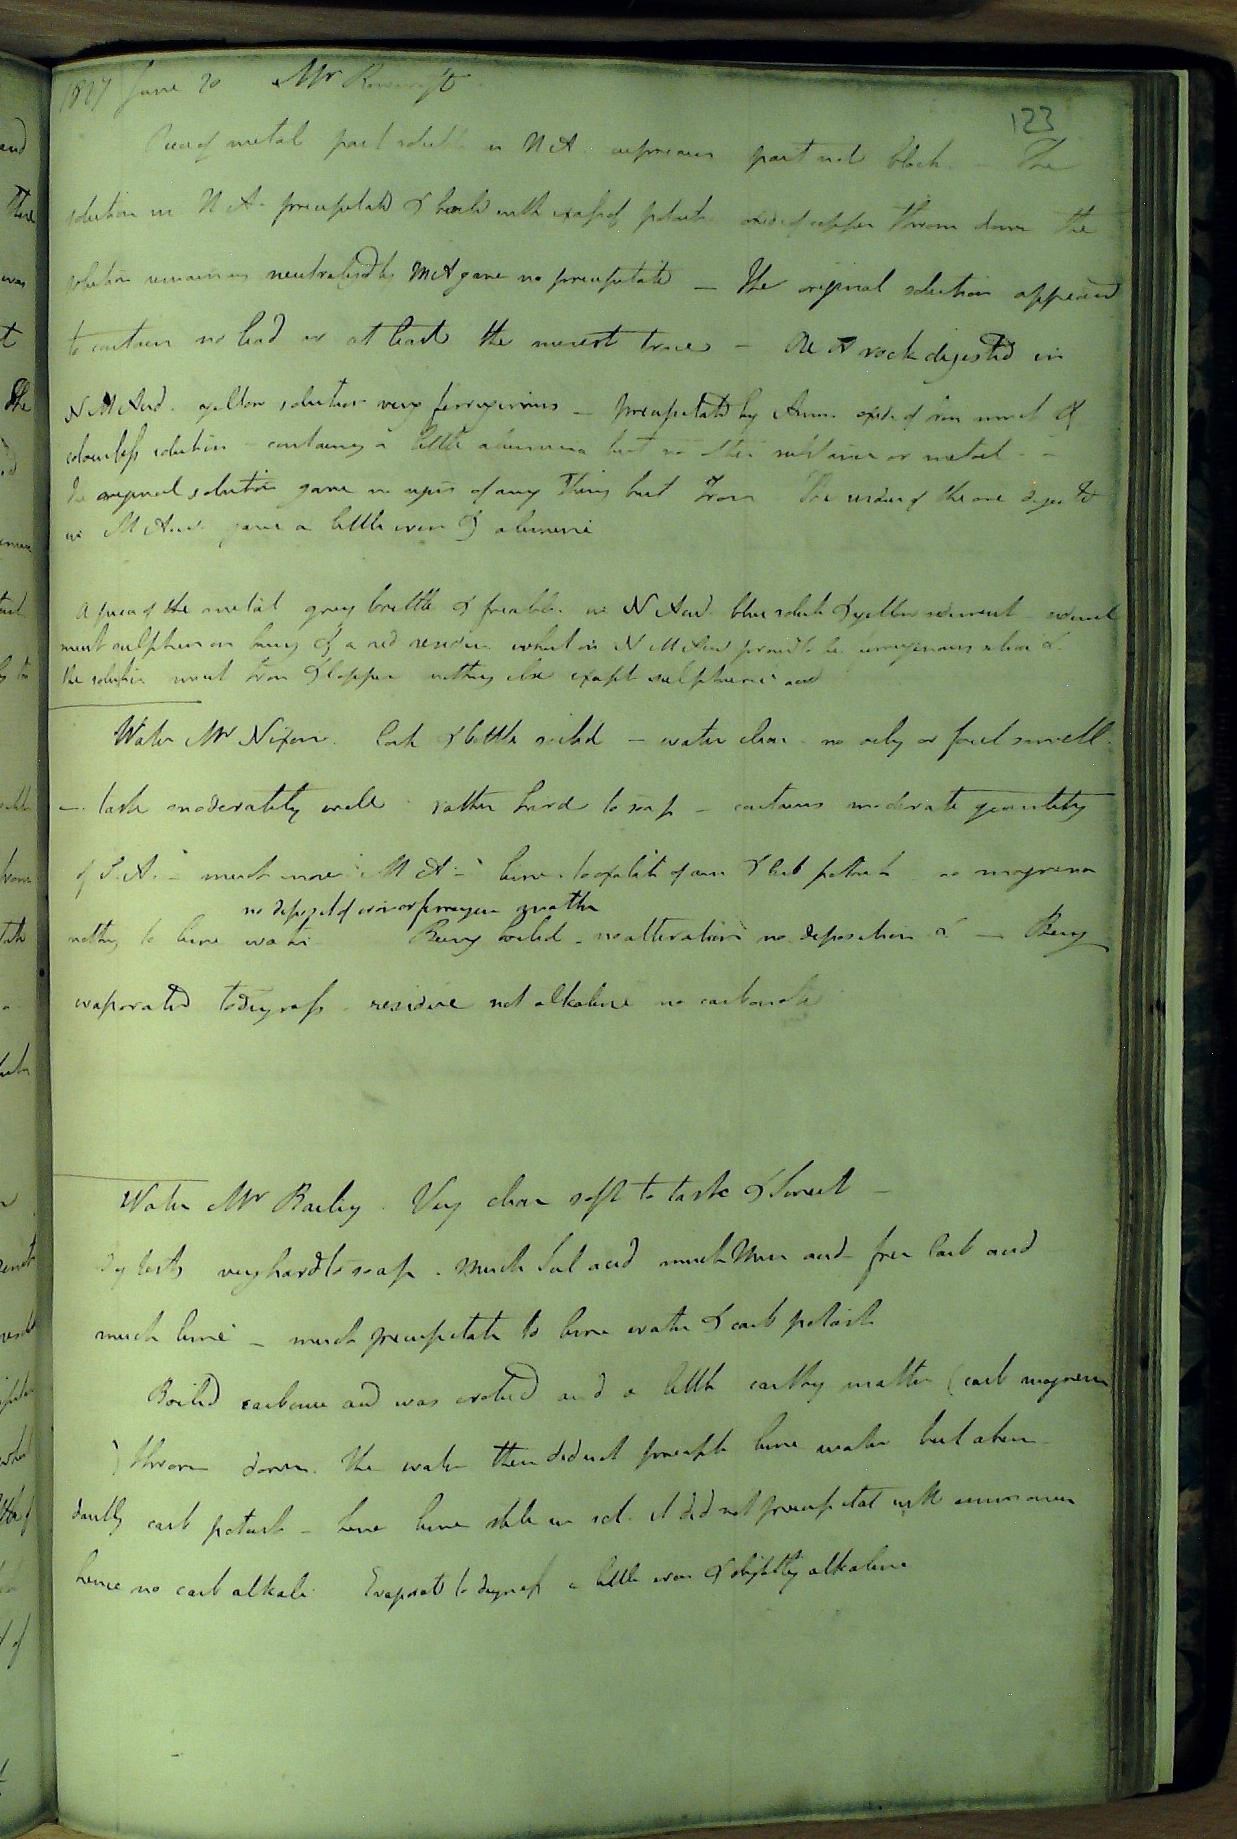 1827 June 20 Mr
123
Piece of metal part soluble in N A. cupreous part not black. — The
solution in N A. precipitated & boiled with excess of potash oxide of copper thrown down the
solution remaining neutralized by M A gave no precipitate — The original solution appeared
to contain no lead or at least the merest trace — Ore & rock digested in
N M Acid. yellow solution very ferruginous — precipitated by Amm. oxide of iron much &
colourless solution — containing a little alumina but no other substance or metal —
The original solution gave no signs of any thing but Iron The residue of the ore digested
in M Acid gave a little iron & alumine
A piece of the metal grey brittle & friable. in N Acid. blue solut & yellow sediment
sulphur on being a red residue which in N M Acid proved to be ferruginous
the solution much Iron & Copper nothing else except sulphuric acid
Water Mr Nixon. Cork & bottle soiled — water clear. no oily or foul smell.
— taste moderately well rather hard to soap — contains moderate quantity
of S. A. — much more M A — lime to oxalate of amm & carb potash no magnesia
no deposit of iron or ferrugin matter
nothing to lime water Being boiled — no alteration no deposition &c — Being
evaporated to dryness. residue not alkaline no carbonate
Water Mr Bailey. Very clear soft to taste & sweet —
By tests very hard to soap. Much Sul acid much Mur acid — free Carb acid
much lime — much precipitate to lime water & carb potash
Boiled carbonic acid was evolved and a little earthy matter (carb magnesia
) thrown down. The water then did not precipitate lime water but abun
dantly carb potash — hence lime still in sol. it did not precipitate with
hence no carb alkali Evaporated to dryness a little iron & slightly alkaline